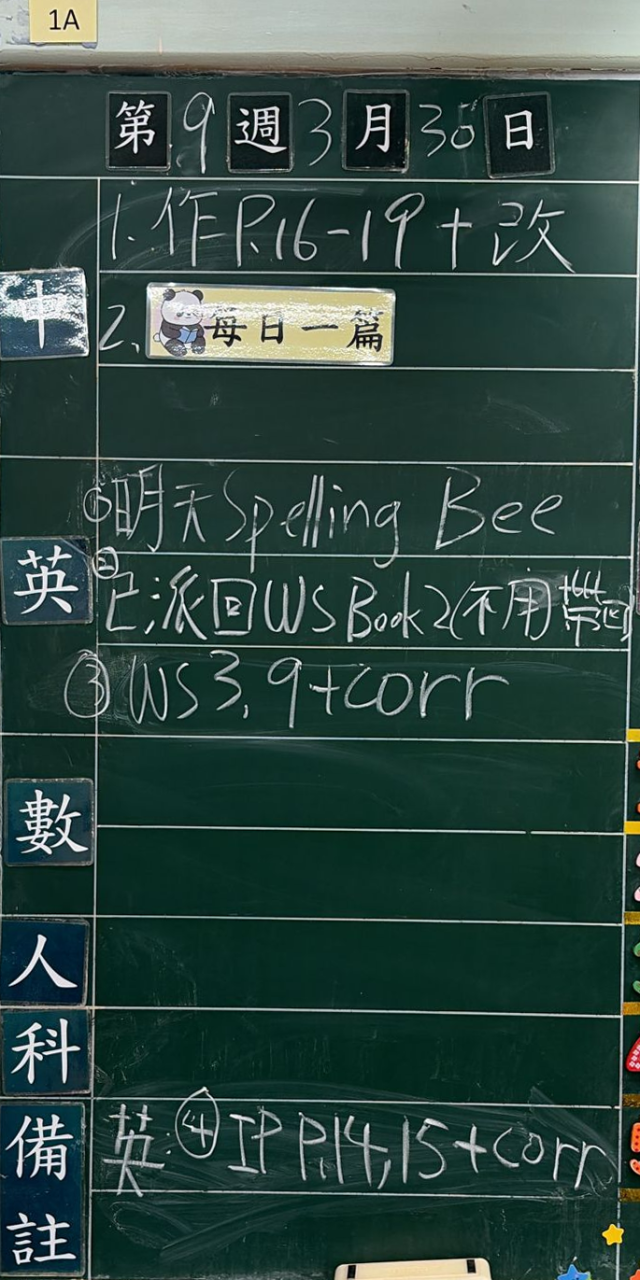 1A
第 9 週 3 月 30 日
中
1. 作 P.16-19 + 改
2. 每日一篇
英
① 明天 Spelling Bee
② 已派回 WS Book 2 (不用
③ WS 3, 9 + corr
數
人
科
備註
英: ④ IP P.14, 15 + corr